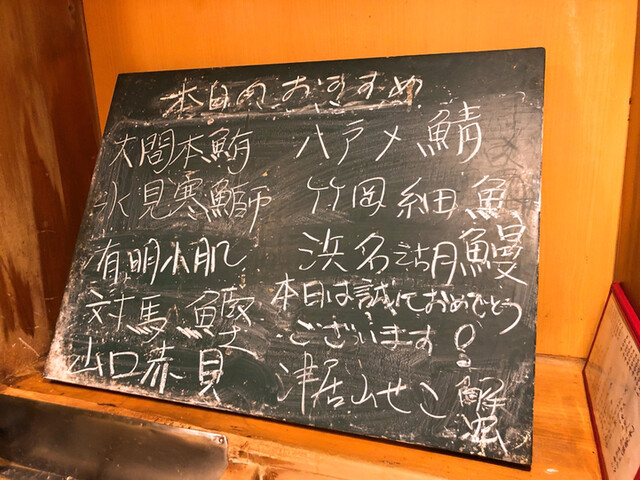 本日のおすすめ
大間本鮪
氷見寒鰤
有明小肌
対馬 鰹
山口赤貝
八戸〆鯖
竹岡細魚
浜名湖鰻
本日は誠におめでとう
ございます!
津居山せこ蟹